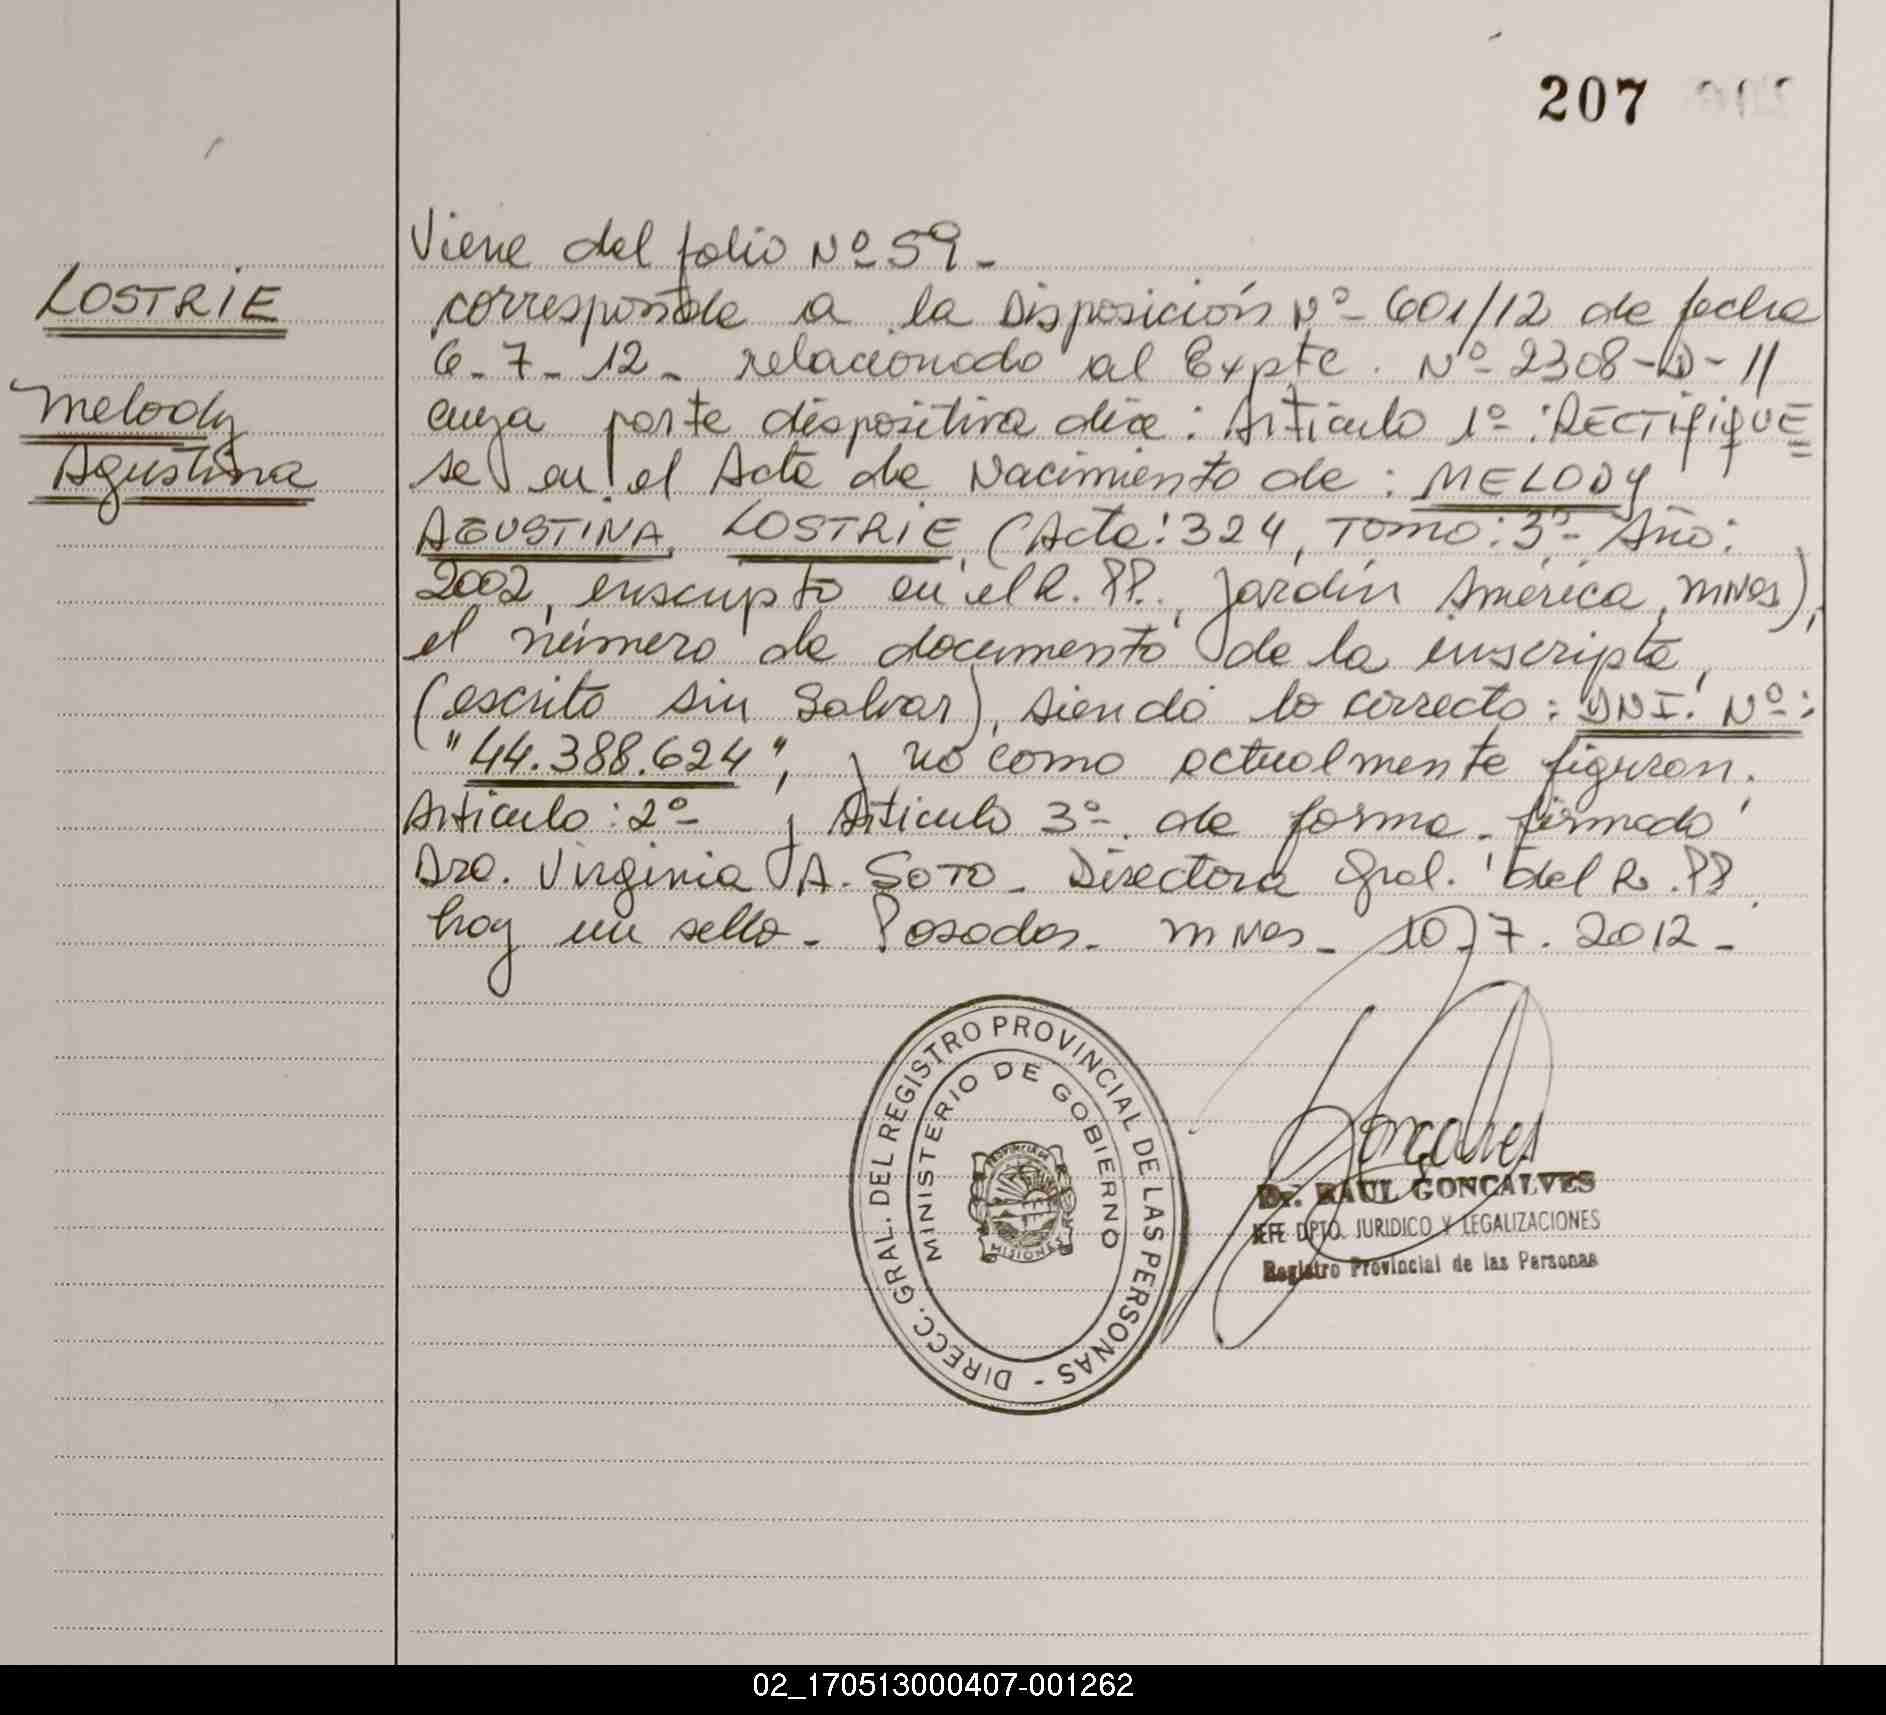 207
LOSTRIE
Melody
Agustina
Viene del folio Nº 59.-
corresponde a la Disposición Nº 601/12 de fecha
6-7-12- relacionado al Expte. Nº 2308-D-11
cuya parte dispositiva dice: Artículo 1º: RECTIFIQUE
se en el Acta de Nacimiento de: MELODY
AGUSTINA LOSTRIE (Acta: 324, Tomo: 3º- Año:
2002, inscripto en el R.PP., Jardín América, Mnes),
el número de documento de la inscripta,
(escrito sin Salvar), siendo lo correcto: DNI. Nº:
"44.388.624", y no como actualmente figuran.
Artículo: 2º y Artículo 3º de forma. firmado
Dra. Virginia A. SOTO - Directora Gral. del R.PP
hay un sello. Posadas. Mnes. 10-7.2012-
DIRECC. GRAL. DEL REGISTRO PROVINCIAL DE LAS PERSONAS -
MINISTERIO DE GOBIERNO
PROVINCIA DE
MISIONES
Goncalves
Dr. RAUL GONCALVES
JEFE DPTO. JURIDICO Y LEGALIZACIONES
Registro Provincial de las Personas
02_170513000407-001262